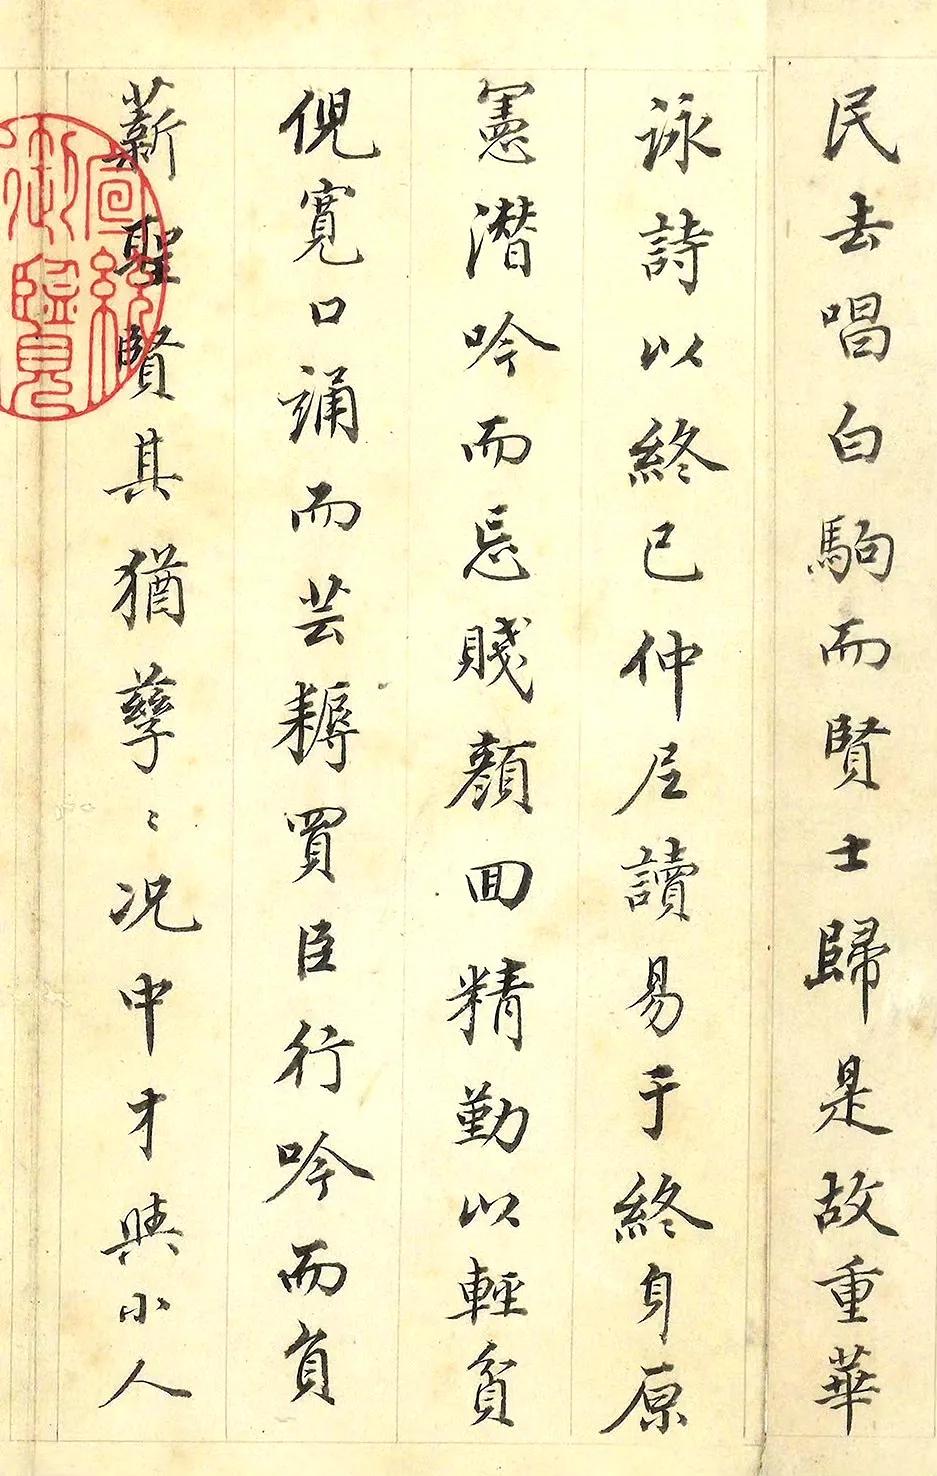 民去唱白駒而賢士歸是故重華
詠詩以終已仲尼讀易于終身原
憲潛吟而忘賤顏回精勤以輕貧
倪寬口誦而芸耨買臣行吟而負
薪聖賢其猶孳〻況中才與小人
宣統御覽